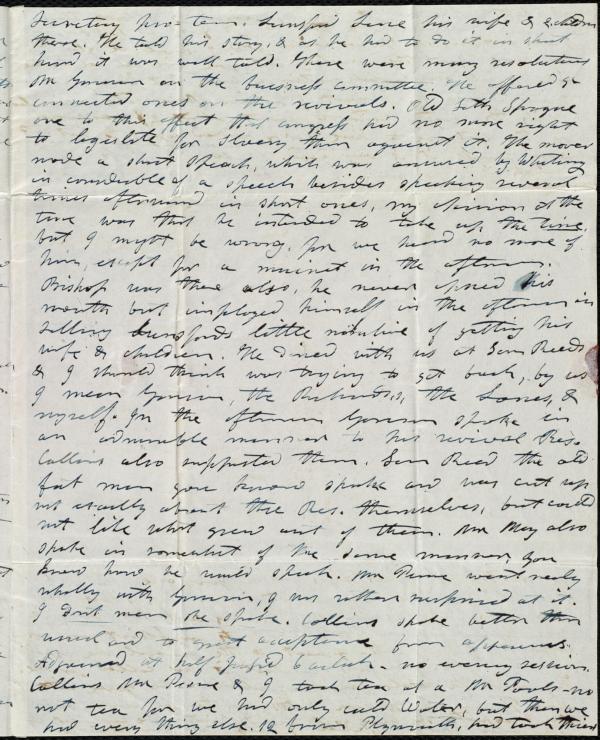 Secretary pro-tem. Lunsford Lane his wife & children
there. He told his story, & as he had to do it in short
hand it was well told. There were many resolutions
Mr Garrison on the business committee. He offered
connected ones on the revivals. Old Seth Sprague
one to this effect that congress had no more right
to legislate for slavery than against it. The mover
made a short speech, which was answered by Whiting
in considerable of a speech besides speaking several
times afterward in short ones, my opinion at the
time was that he intended to take up the time.
but I might be wrong, for we heard no more of
him, except for a moment in the afternoon.
Bishop was there also, he never opened his
mouth but employed himself in the afternoon in
selling Lunsfords little narrative of getting his
wife & children. He dined with us at Sam Reeds
& I should think was trying to get back, by us
I mean Garrison, the & 
myself. In the afternoon Garrison spoke in
an admirable manner to his revival Res.
Collins also supported them. Sam Reed the old
fat man you know spoke and was 
not exactly about the Res. themselves, but could
not like what grew out of them. Mr May also
spoke in somewhat of the same manner, you
know how he would speak. Mr went nearly
wholly with Garrison, I was rather surprised at it.
I don't mean he spoke. Collins spoke better than
usual and to great acceptance from appearances.
Adjourned at half past 6 oclock - no evening session.
Collins Mr & I took tea at a Mr - no
not tea for we had only cold Water, but then we
had every thing else. 12 from Plymouth, had took their